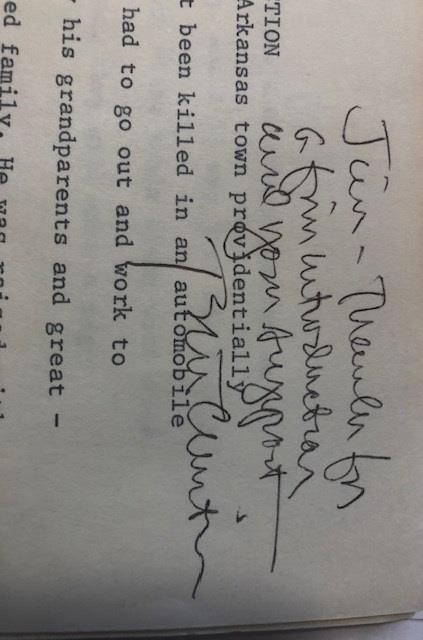 TION
Arkansas town providentially
t been killed in an automobile
had to go out and work to
his grandparents and great -
ed family. He was raised with
Jim - Thanks for
a fine introduction
and your support
Bill Clinton